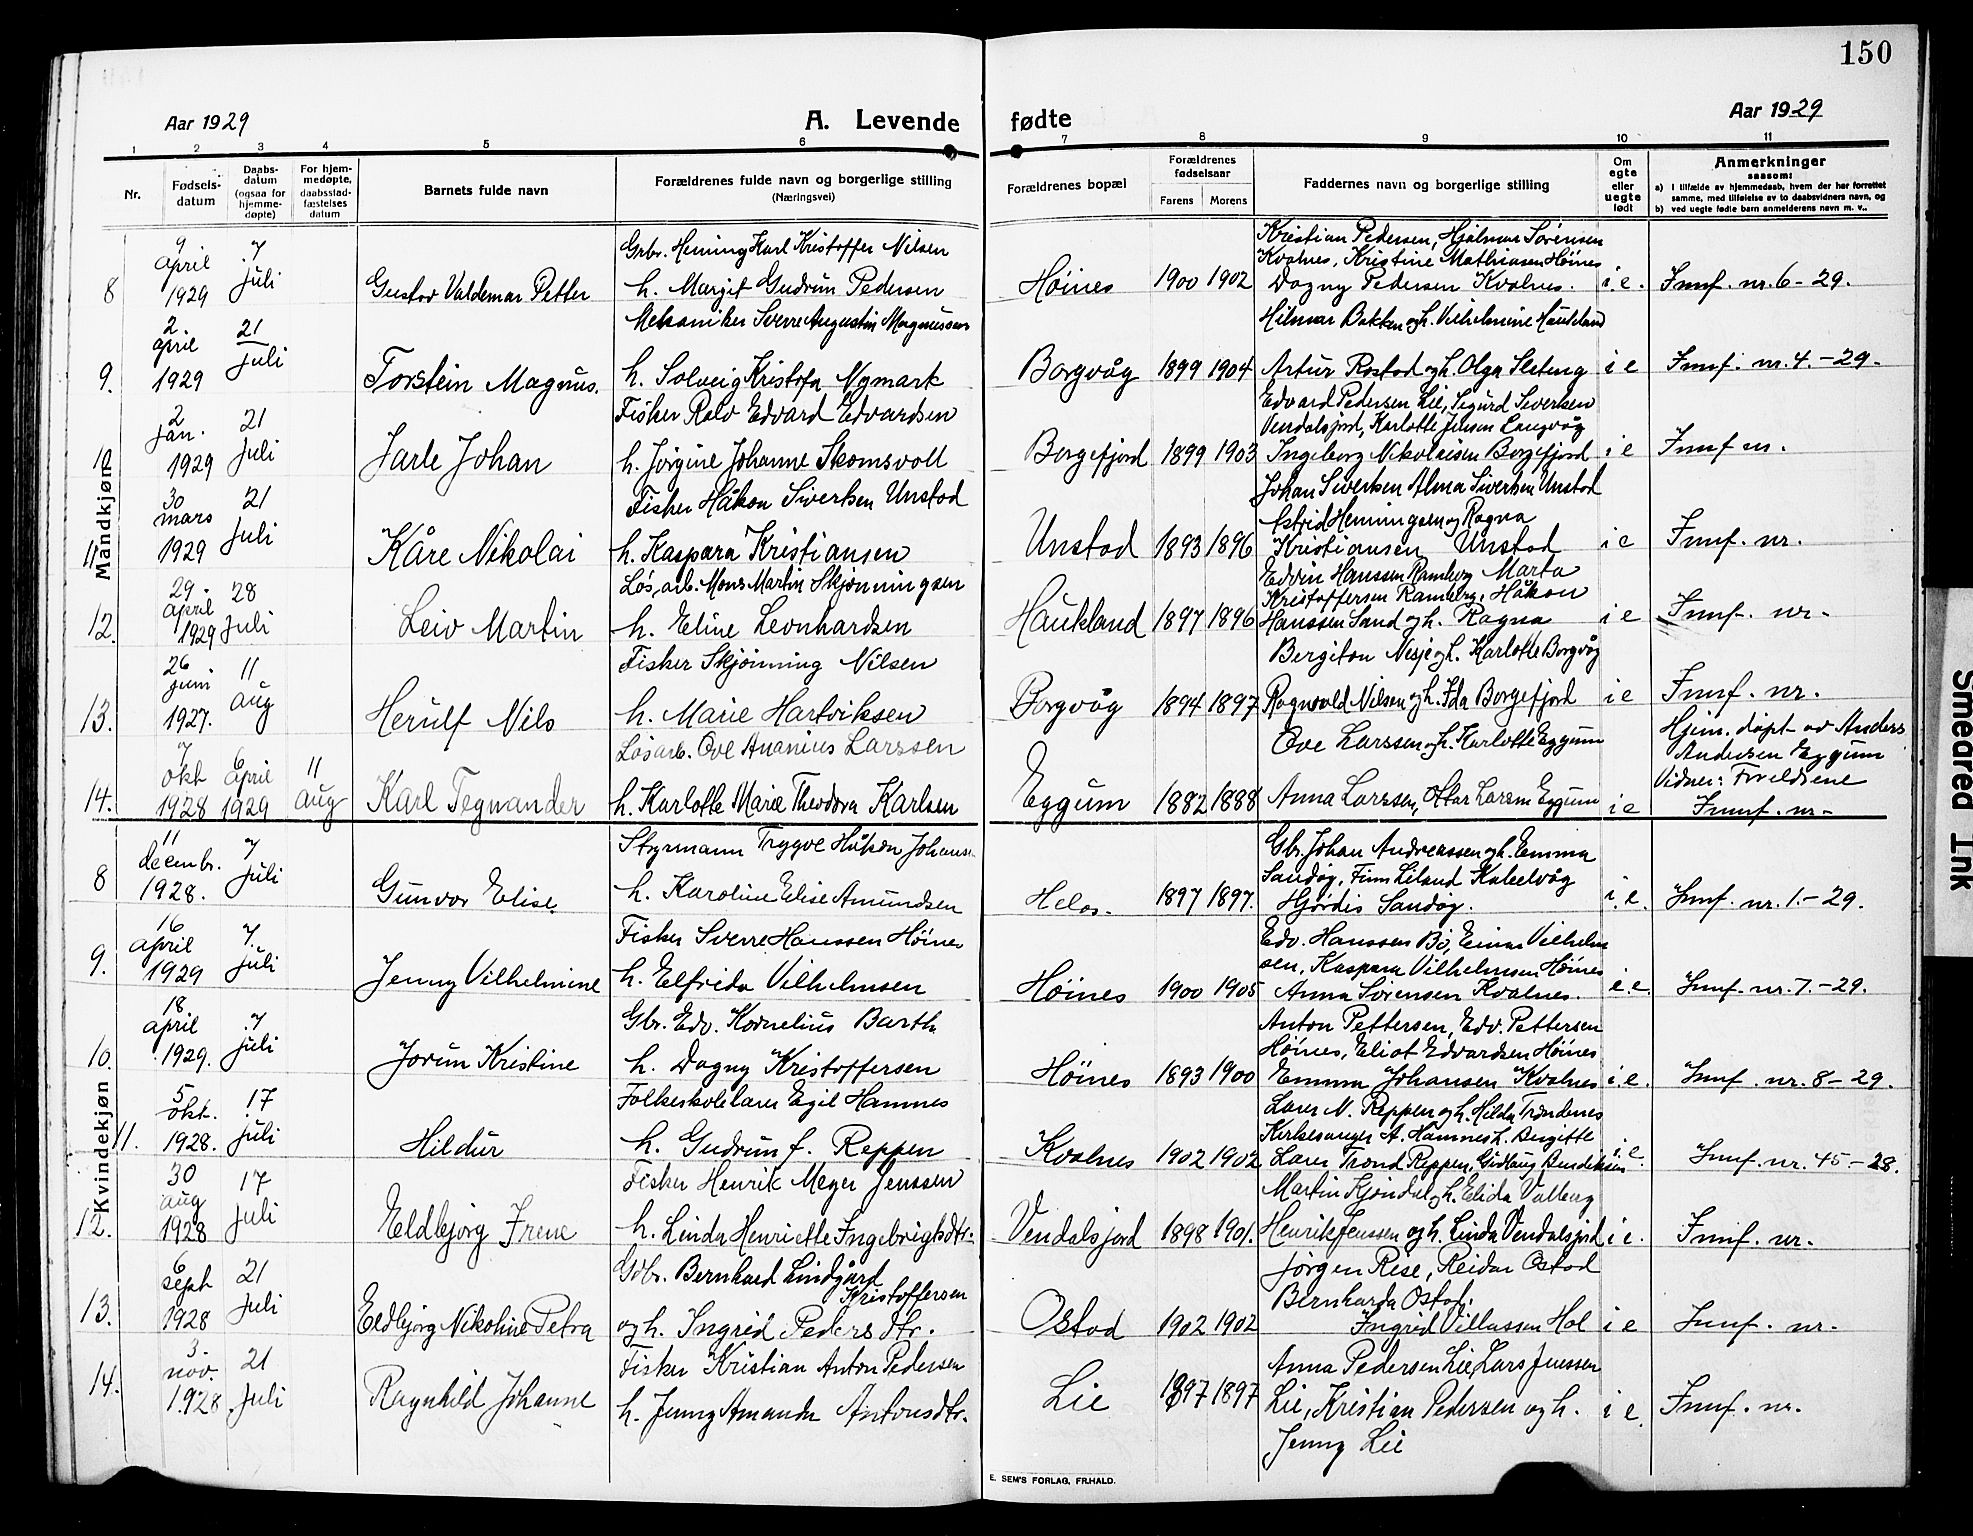 150
Aar 1929
A. Levende
fødte
Aar 1929
1 2 3 4 5 6 7 8 9 10 11
Nr.
Fødsels-
datum
Daabs-
datum
(ogsaa for
hjemme-
døpte)
For hjem-
medøpte,
daabsstad-
fæstelses
datum
Barnets fulde navn
Forældrenes fulde navn og borgerlige stilling
(Næringsvei)
Forældrenes bopæl
Forældrenes
fødselsaar
Farens Morens
Faddernes navn og borgerlige stilling
Om
egte
eller
uegte
født
Anmerkninger
saasom:
a) I tilfælde av hjemmedaab, hvem der har forrettet
samme, med tilføielse av to daabsvidners navn, og
b) ved uegte fødte barn anmelderens navn m. v..
Mandkjøn
8
9 april 1929
7 juli
Gustav Valdemar Petter
Grbr. Hening Karl Kristoffer Nilsen
h. Margit Gudrun Pedersen
Høines
1900 1902
Kristian Pedersen, Hjalmar Sørensen
Kvalnes, Kristine Mathiasen Høines
Dagny Pedersen Kvalnes.
i. e.
Innf. nr. 6 - 29.
9.
2. april 1929
21 juli
Torstein Magnus.
Mekaniker Sverre Augustin Magnussen
h. Solveig Kristofa Nymark
Borgvåg
1899 1904
Hilmar Bakken og h. Vilhelmine Haukland
Artur Rostad og h. Olga Sleteng
i e
Innf. nr. 4. - 29.
10
2 jan. 1929
21 juli
Jarle Johan
Fisker Rolv Edvard Edvardsen
h. Jørgine Johanne Skomsvoll
Borgefjord
1899 1903
Edvard Pedersen Lie, Sigurd Sivertsen
Vendalsjord, Karlotte Jensen Langvåg
Ingeborg Nikolaisen Borgefjord
i e
Innf nr.
11
30 mars 1929
21 juli
Kåre Nikolai
Fisker Håkon Sivertsen Unstad
h. Kaspara Kristiansen
Unstad
1893 1896
Johan Sivertsen Alma Sivertsen Unstad
Astrid Hemingsen og Ragna
Kristiansen Unstad
i e
Innf. nr.
12.
29. april 1929
28 juli
Leiv Martin
Løsarb. Mons Martin Skjønningsen
h. Eline Leonhardsen
Haukland
1897 1896
Edvin Hanssen Ramberg Marta
Kristoffersen Ramberg, Håkon
Hanssen Sand og h. Ragna
i e
Innf. nr.
13.
26 juni 1927.
11 aug
Herulf Nils
Fisker Skjønning Nilsen
h. Marie Hartviksen
Borgvåg
1894 1897
Bergiton Nesje og h. Karlotte Borgvåg
Ragnvald Nilsen og h. Ida Borgefjord
i e
Innf. nr.
14.
7 okt 1928
6 april 1929
11 aug
Karl Tegnander
Løsarb. Ove Ananius Larssen
h. Karlotte Marie Theodora Karlsen
Eggum
1882 1888
Ove Larssen og h. Karlotte Eggum
Anna Larssen, Ottar Larssen Eggum
i e
Hjem. døpt av Anders
Andersen Eggum
Vidner: Foreldrene
Innf. nr.
Kvindekjøn
8
11 decmbr. 1928.
7 juli
Gunvor Elise.
Styrmann Trygve Håkon Johans
h. Karoline Elise Amundsen
Helos.
1897 1897.
Gbr. Johan Andreassen og h. Emma
Sandøy, Finn Leland Kabelvåg
Hjørdis Sandøy.
i. e.
Innf. nr. 1. - 29.
9.
16 april 1929
7. juli
Jenny Vilhelmine
Fisker Sverre Hanssen Høines
h. Elfrida Vilhelmsen
Høines
1900 1905
Edv. Hanssen Bø, Einar Vilhelm
sen, Kaspara Vilhelmsen Høines
Anna Sørensen Kvalnes.
e. e.
Innf. nr. 7. - 29.
10.
18 april 1929.
7 juli
Jorun Kristine
Gbr. Edv. Kornelius Barth
h. Dagny Kristoffersen
Høines
1893 1900
Anton Pettersen, Edv. Pettersen
Høines, Eliot Edvardsen Høines
Emma Johansen Kvalnes
i. e.
Innf. nr. 8 - 29.
11.
5 okt. 1928.
17 juli
Hildur
Folkeskolelærer Egil Hamnes
h. Gudrun f. Reppen
Kvalnes
1902 1902
Lærer N. Reppen og h. Hilda Trondenes
Kirkesanger A. Hamnes h. Birgitte
Lærer Trond Reppen, Gidlaug Bendiksen
i. e.
Innf. nr. 45 - 28.
12.
30 aug 1928
17 juli
Eldbjørg Irene
Fisker Henrik Meyer Jenssen
h. Linda Henriette Ingebrigtsdtr.
Vendalsjord
1898 1901.
Martin Kjøndal og h. Elida Valberg
Henrik Jenssen og h. Linda Vendalsjord
i e.
Innf. nr.
13.
6 sept 1928
21 juli
Eldbjørg Nikoline Petra
Gdbr. Bernhard Lindgård
Kristoffersen
og h. Ingrid Pedersdtr.
Ostad
1902 1902
Jørgen Rise, Reidar Ostad
Bernharda Ostad,
Ingrid Villassen Hol
i e
Innf. nr.
14.
3. nov. 1928
21 juli
Ragnhild Johanne
Fisker Kristian Anton Pedersen
h. Jenny Amanda Antonsdtr.
Lie
1897 1897
Anna Pedersen Lie, Lars Jenssen
Lie, Kristian Pedersen og h.
Jenny Lie
i e.
Innf. nr.
E. SEM'S FORLAG, FR.HALD.
Smeared Ink